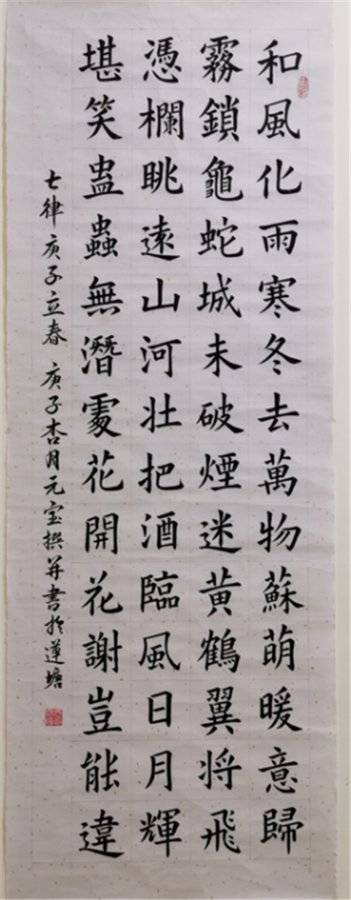 和風化雨寒冬去萬物蘇萌暖意歸
霧鎖龜蛇城未破煙迷黃鶴翼将飛
憑欄眺遠山河壯把酒臨風日月輝
堪笑蛊蟲無潛處花開花謝豈能違
七律庚子立春 庚子杏月元宝撰并書於蓮塘